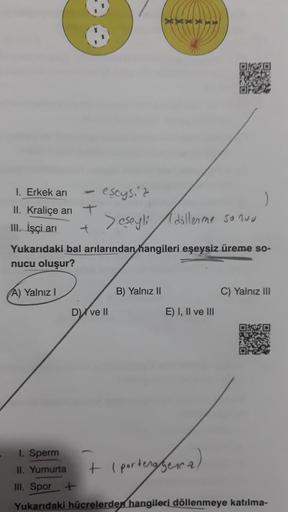 I. Erkek arı - eşeysiz
II. Kraliçe arı +
> eşeyli (döllenme sonucu)
III. İşçi arı +
Yukarıdaki bal arılarından hangileri eşeysiz üreme so-
nucu oluşur?
A) Yalnız I B) Yalnız II C) Yalnız III
D) I ve II E) I, II ve III
I. Sperm -
II. Yumurta + (partenogenez)
III. Spor +
Yukarıdaki hücrelerden hangileri döllenmeye katılma-